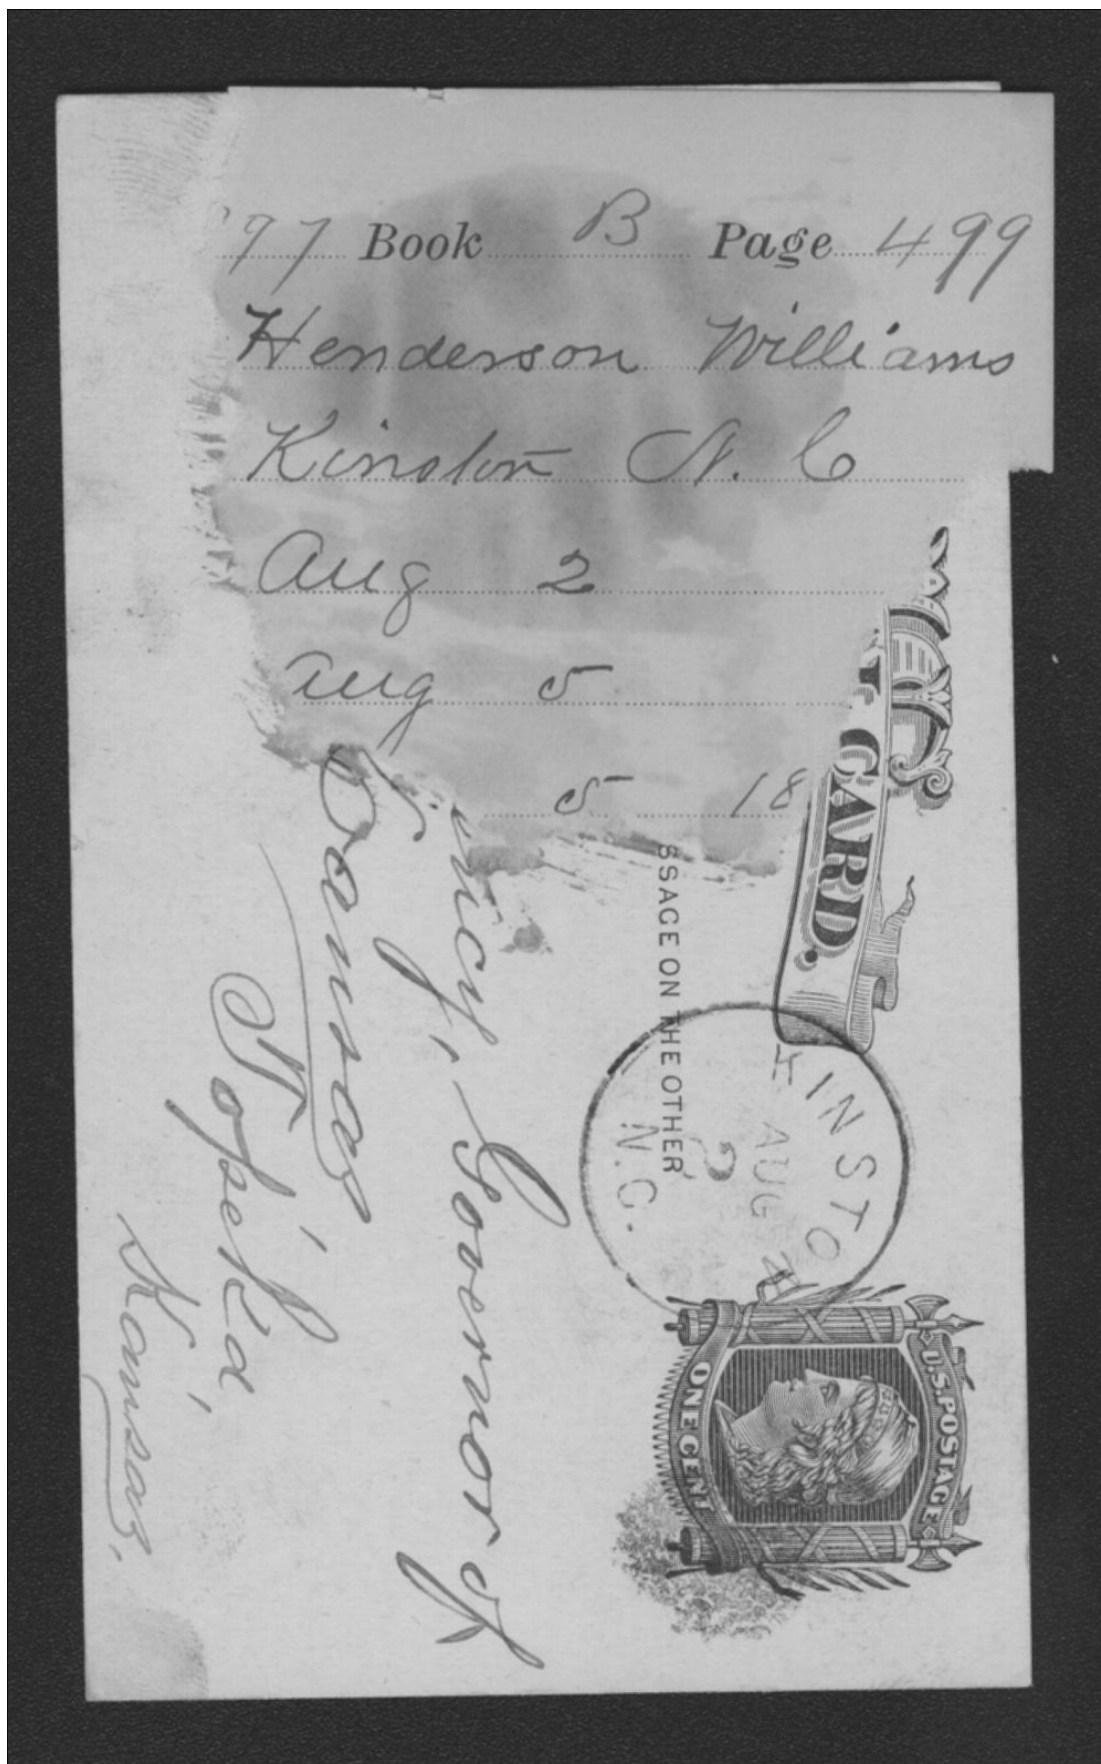 97 Book B Page 499
Henderson Williams
Kinston N. C
Aug 2
Aug 5
5 18
CARD.
SSAGE ON THE OTHER
KINSTON
AUG
2
N.C.
U.S. POSTAGE
ONE CENT
ency, Governor of
Kansas
Topeka
Kansas,